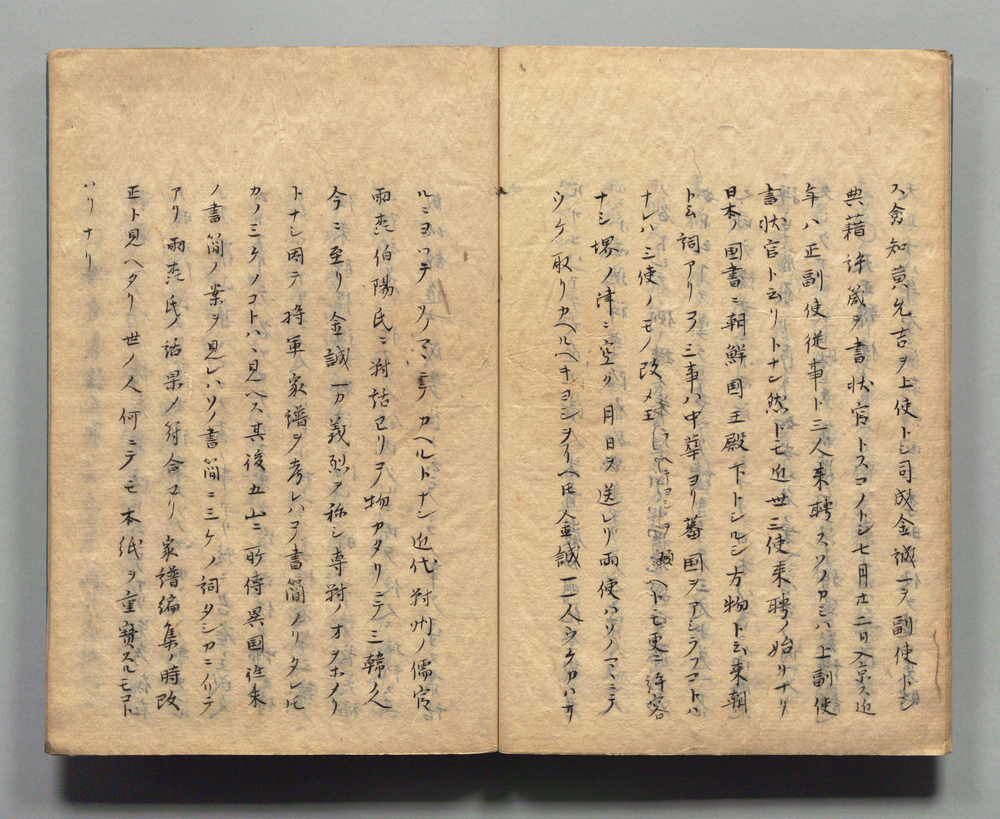 ス僉知黄允吉ヲ上使トシ司成金誠一ヲ副使トシ
典籍許筬ヲ書状官トスコノトシ七月廿二日入京ス近
年ハ正副使従事ト三人来聘スソノカミハ上副使
書状官ト云リトナン然トモ近世三使来聘ノ始リナリ
日本ノ国書ニ朝鮮国王殿下トシルシ方物ト云来朝
ト云詞アリ ヲ三事ハ中華ヨリ蕃国ヲアシラフコトハ
ナレハ三使ノモノ改メ ヘトモ更ニ許容
ナシ堺ノ津ニ空ク月日ヲ送レリ両使ハソノマヽニテ
ウケ取リカヘルヘキヨシヲ云ヘトモ金誠一一人ウケカハサ
ルニヨツテソノマヽニテカヘルトナン近代対州ノ儒官
雨森伯陽氏ニ対話セリヲ物カタリニテ三韓ノ人
今ニ至リ金誠一カ義烈ヲ称シ専対ノオヲホメリ
トナン因テ将軍家譜ヲ考レハヲ書簡ノリタレ氏
カノ三ケノコトハハ見ヘス其後五山ニ所傳異国往来
ノ書簡ノ案ヲ見レハソノ書簡ニ三ケノ詞タシカニノリテ
アリ雨森氏ノ話果ノ符合セリ家譜編集ノ時改
正ト見ヘタリ世ノ人何ニテモ本紙ヲ重寶スルモコト
ハリナリ